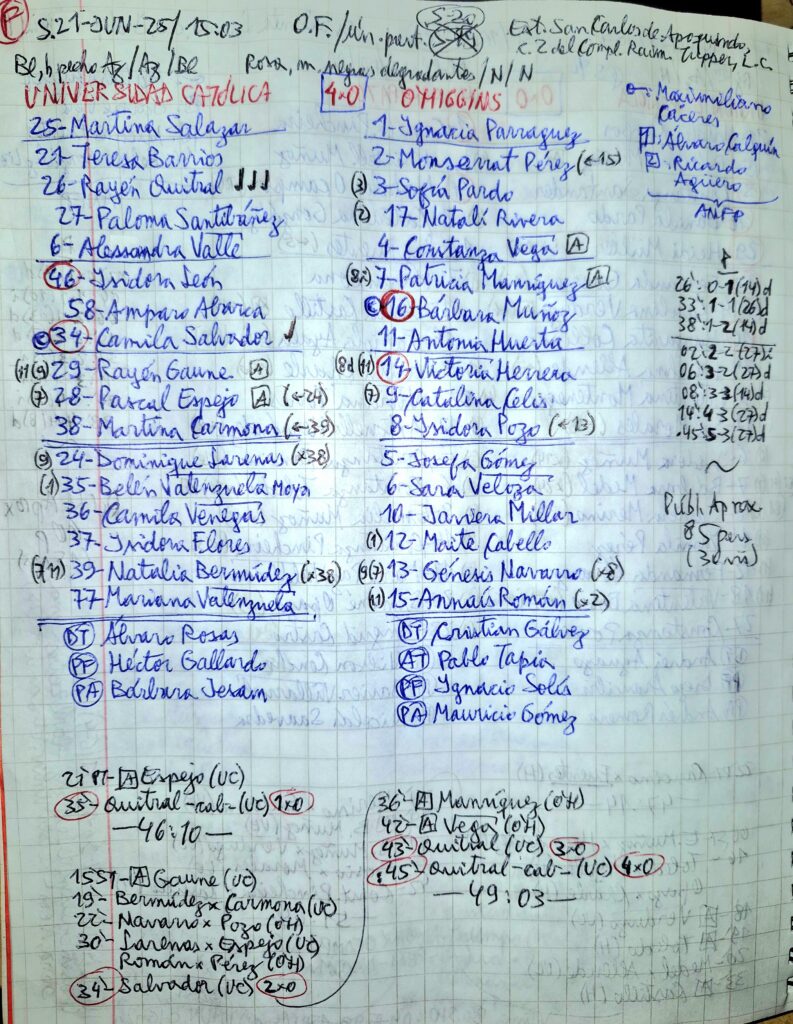 P S.21-JUN-25/ 15:03 O.F./ún. part. S-20 Ext. San Carlos de Apoquindo,
c. 2 del Compl. Raim. Tupper, L.C.
Bl, b pecho Az/Az/Bl Rosa, m. negras degradantes/N/N
UNIVERSIDAD CATÓLICA 4x0 O'HIGGINS
25-Martina Salazar
21-Teresa Barrios
26-Rayén Quitral
27-Paloma Santibáñez
6-Alessandra Valle
46-Isidora León
58-Amparo Abarca
C 34-Camila Salvador
(11)(9) 29-Rayén Gaune A
(7) 28-Pascal Espejo A (←24)
38-Martina Carmona (←39)
(9) 24-Dominique Larenas (x38)
(1) 35-Belén Valenzuela Moya
36-Camila Venegas
37-Isidora Flores
39-Natalia Bermúdez (x38)
77-Mariana Valenzuela
DT Álvaro Rosas
PF Héctor Gallardo
PA Bárbara Jesam
1-Ignacia Parraguez
2-Monserrat Pérez (←15)
(3) 3-Sofía Pardo
(2) 17-Natalí Rivera
4-Constanza Vega A
(8i) 7-Patricia Manríquez A
C 16-Bárbara Muñoz
11-Antonia Huerta
(8d)(11) 14-Victoria Herrera
(7) 9-Catalina Celis
8-Isidora Pozo (←13)
5-Josefa Gómez
6-Sara Veloza
10-Javiera Millar
(1) 12-Maite Cabello
(9)(7) 13-Génesis Navarro (x8)
(11) 15-Annaís Román (x2)
DT Cristian Gálvez
AT Pablo Tapia
PF Ignacio Solís
PA Mauricio Gómez
Maximiliano
Cáceres
Álvaro Calquín
Ricardo
Agüero
ANFP
26': 0-1(14)d
33': 1-1(26)d
38': 1-2(14)d
02': 2-2(27)i
06': 3-2(27)d
08': 3-3(14)d
14': 4-3(27)d
.45': 5-3(27)d
Públ. Aprox
85 pers
(30 vis)
21'87-A Espejo (UC)
35'-Quitral-cab-(UC) 1x0
—46:10—
15'59-A Gaune (UC)
19'-Bermúdez x Carmona (UC)
22'-Navarro x Pozo (O'H)
30'-Larenas x Espejo (UC)
Román x Pérez (O'H)
34'-Salvador (UC) 2x0
36'-A Manríquez (O'H)
42'-A Vega (O'H)
43'-Quitral (UC) 3x0
:45'-Quitral-cab-(UC) 4x0
—49:03—